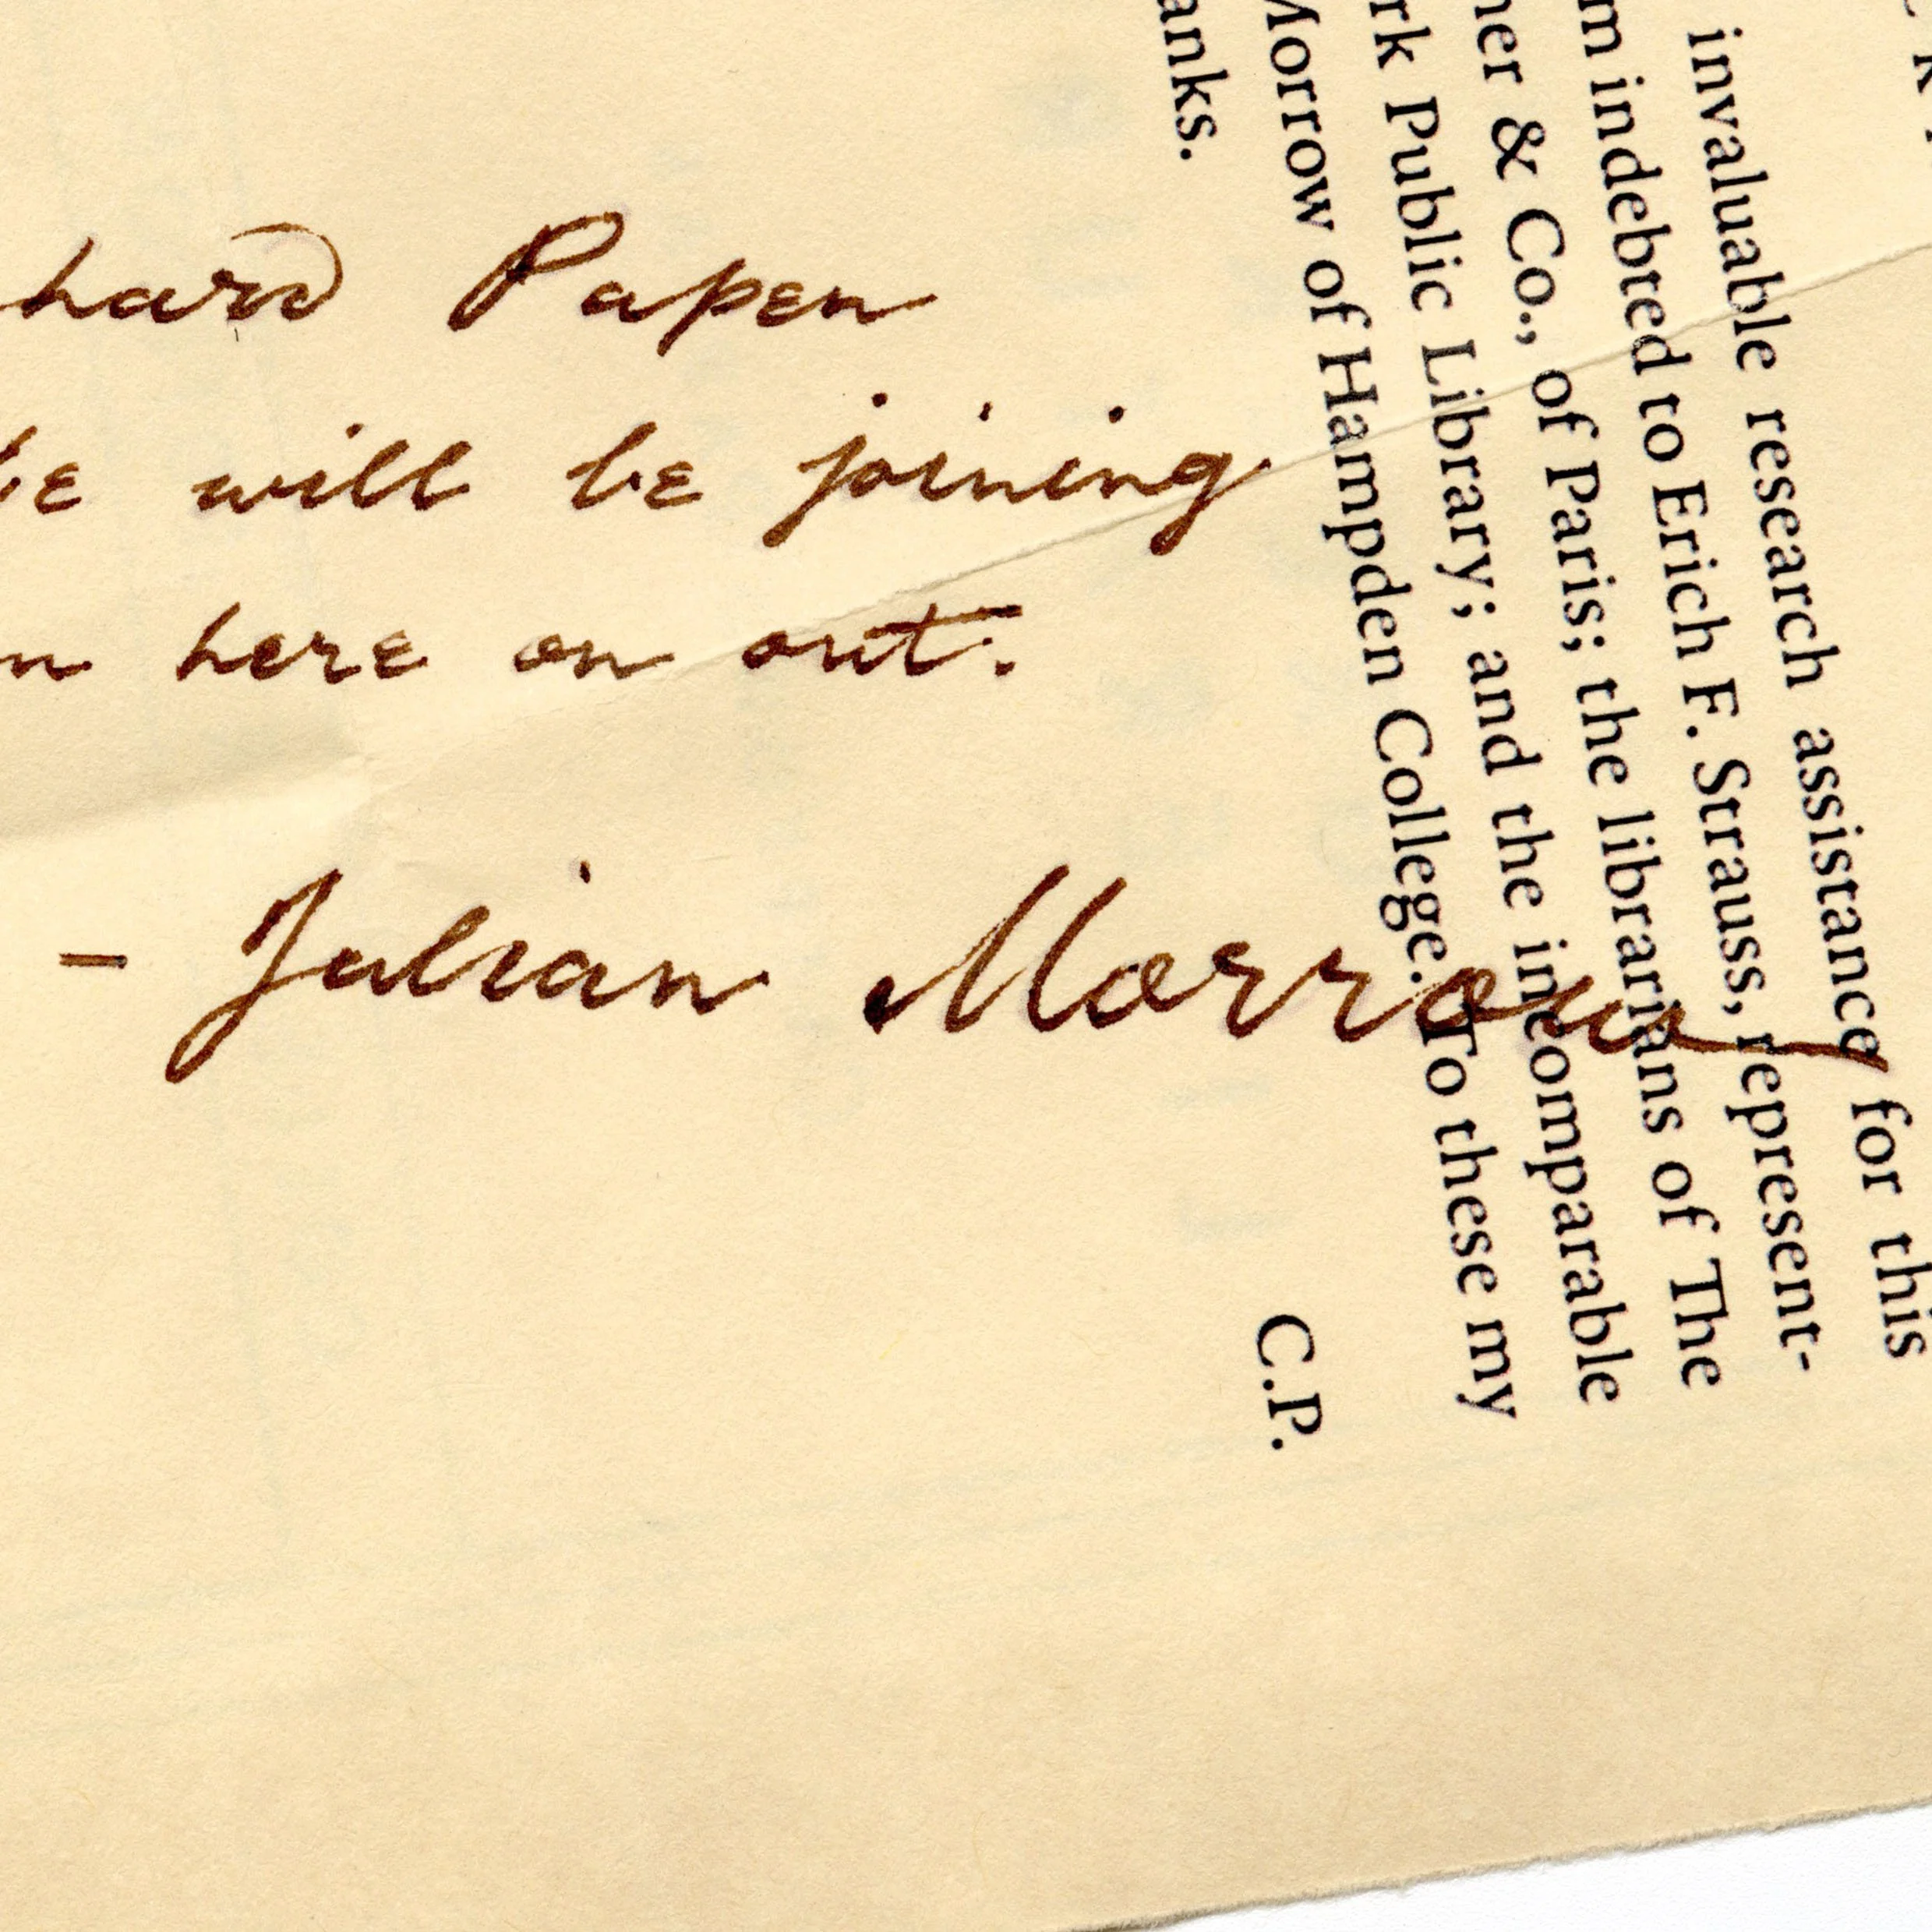 hard Papen
be will be joining
m here on out.
- Julian Morrow
invaluable research assistance for this
m indebted to Erich F. Strauss, represent-
ner & Co., of Paris; the librarians of The
rk Public Library; and the incomparable
Morrow of Hampden College. To these my
anks.
C.P.